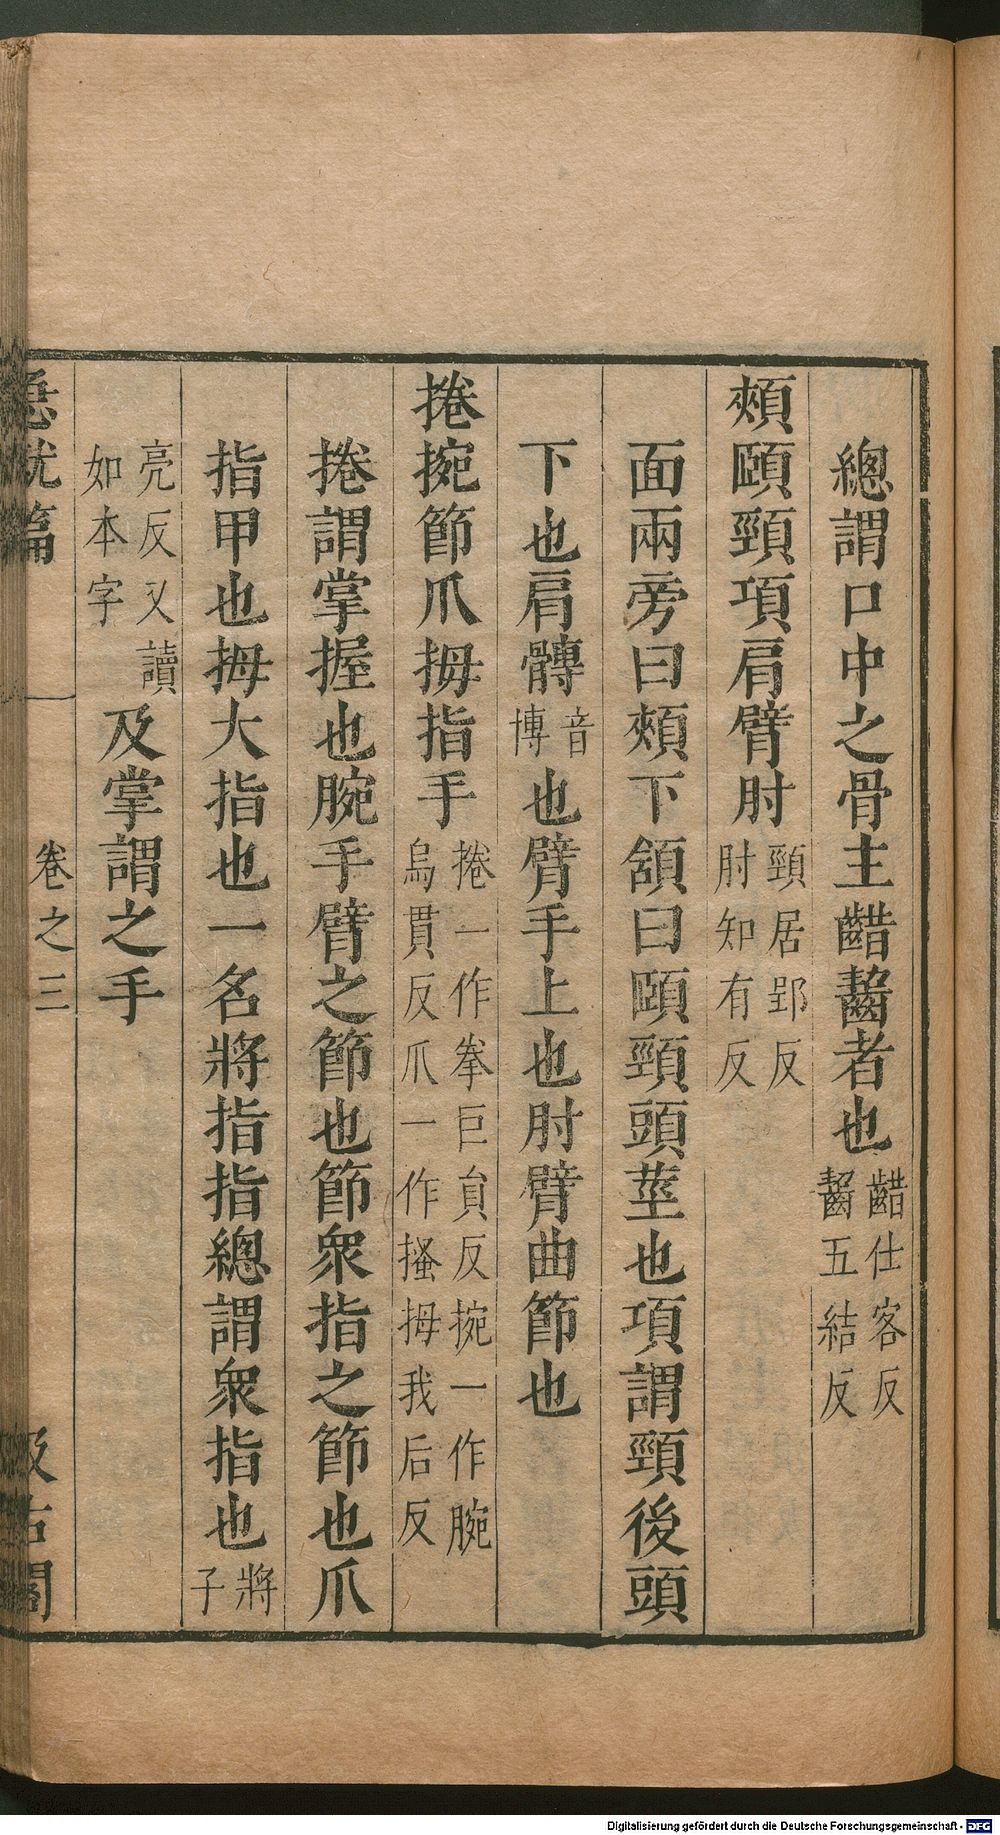 總謂口中之骨主齰齧者也齰仕客反齧五結反
頰頤頸項肩臂肘頸居郢反肘知有反
面兩旁曰頰下頷曰頤頸頭莖也項謂頸後頭
下也肩髆音博也臂手上也肘臂曲節也
捲捥節爪拇指手捲一作拳巨貟反捥一作腕烏貫反爪一作搔拇我后反
捲謂掌握也腕手臂之節也節衆指之節也爪
指甲也拇大指也一名將指指總謂衆指也將子
亮反又讀如本字及掌謂之手
急就篇 卷之三 汲古閣
Digitalisierung gefördert durch die Deutsche Forschungsgemeinschaft - DFG